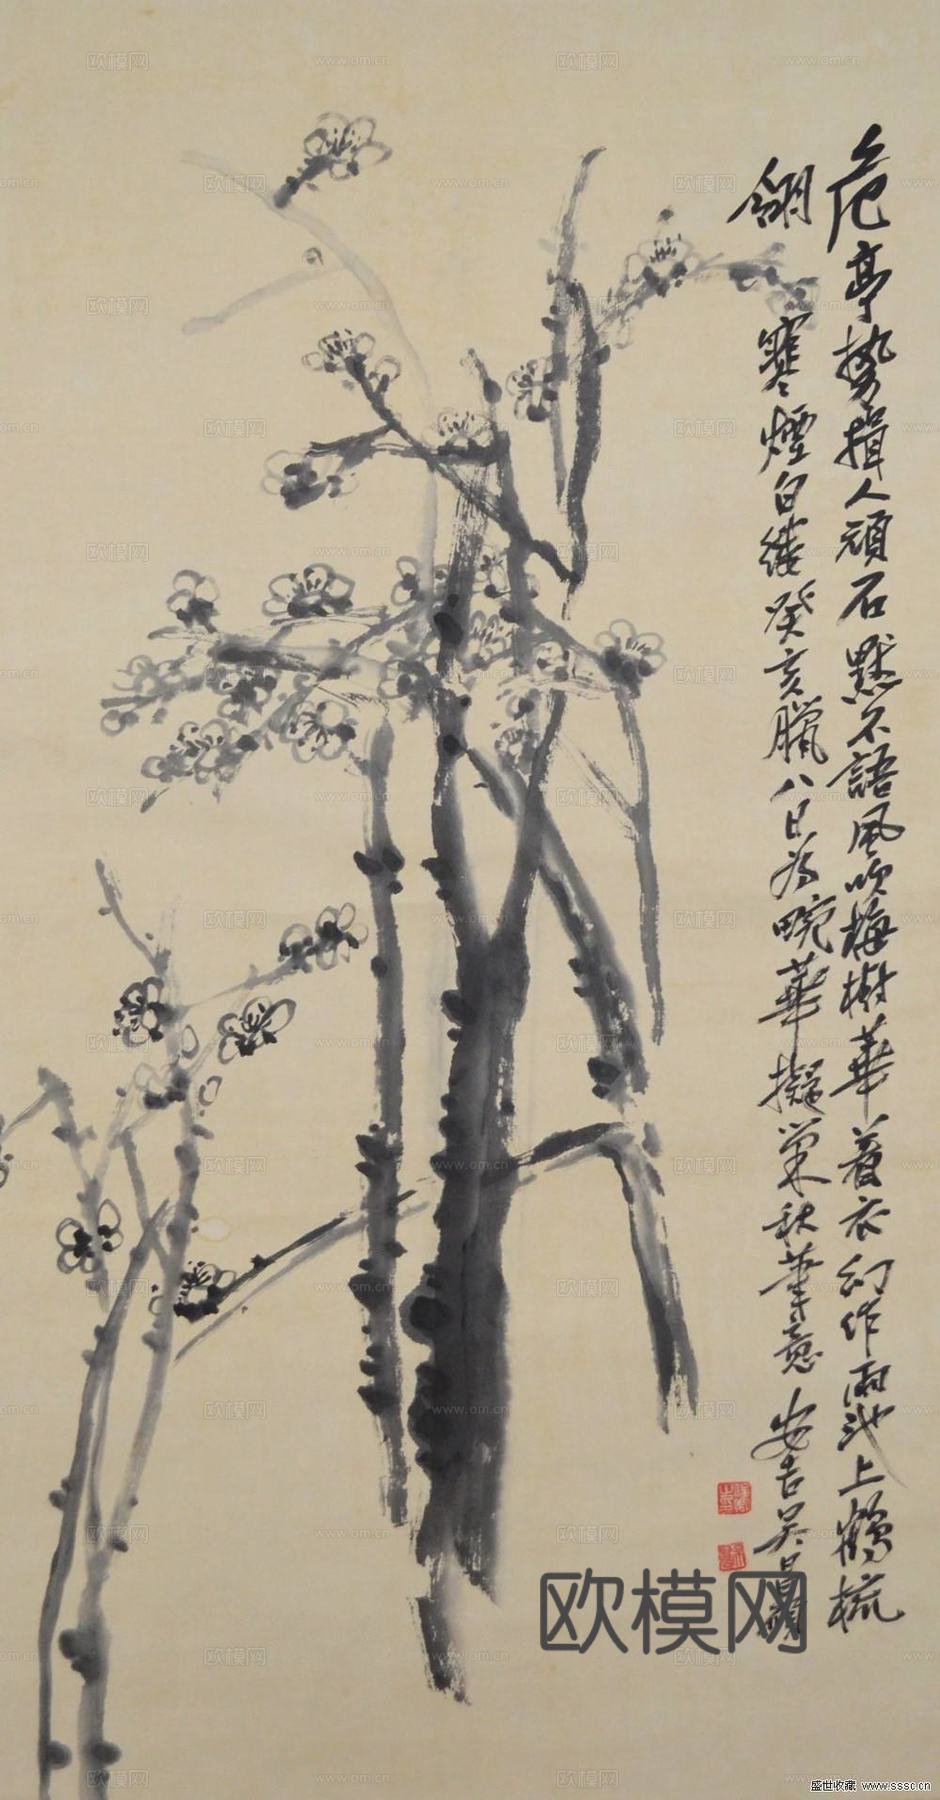 危亭勢揖人頑石默不語風吹梅樹華著衣幻作雨池上鶴梳
翎寒煙白縷縷癸亥臘八日為畹華擬巢林秋華意安吉吳昌碩
欧模网
www.om.cn
盛世收藏 www.sssc.cn